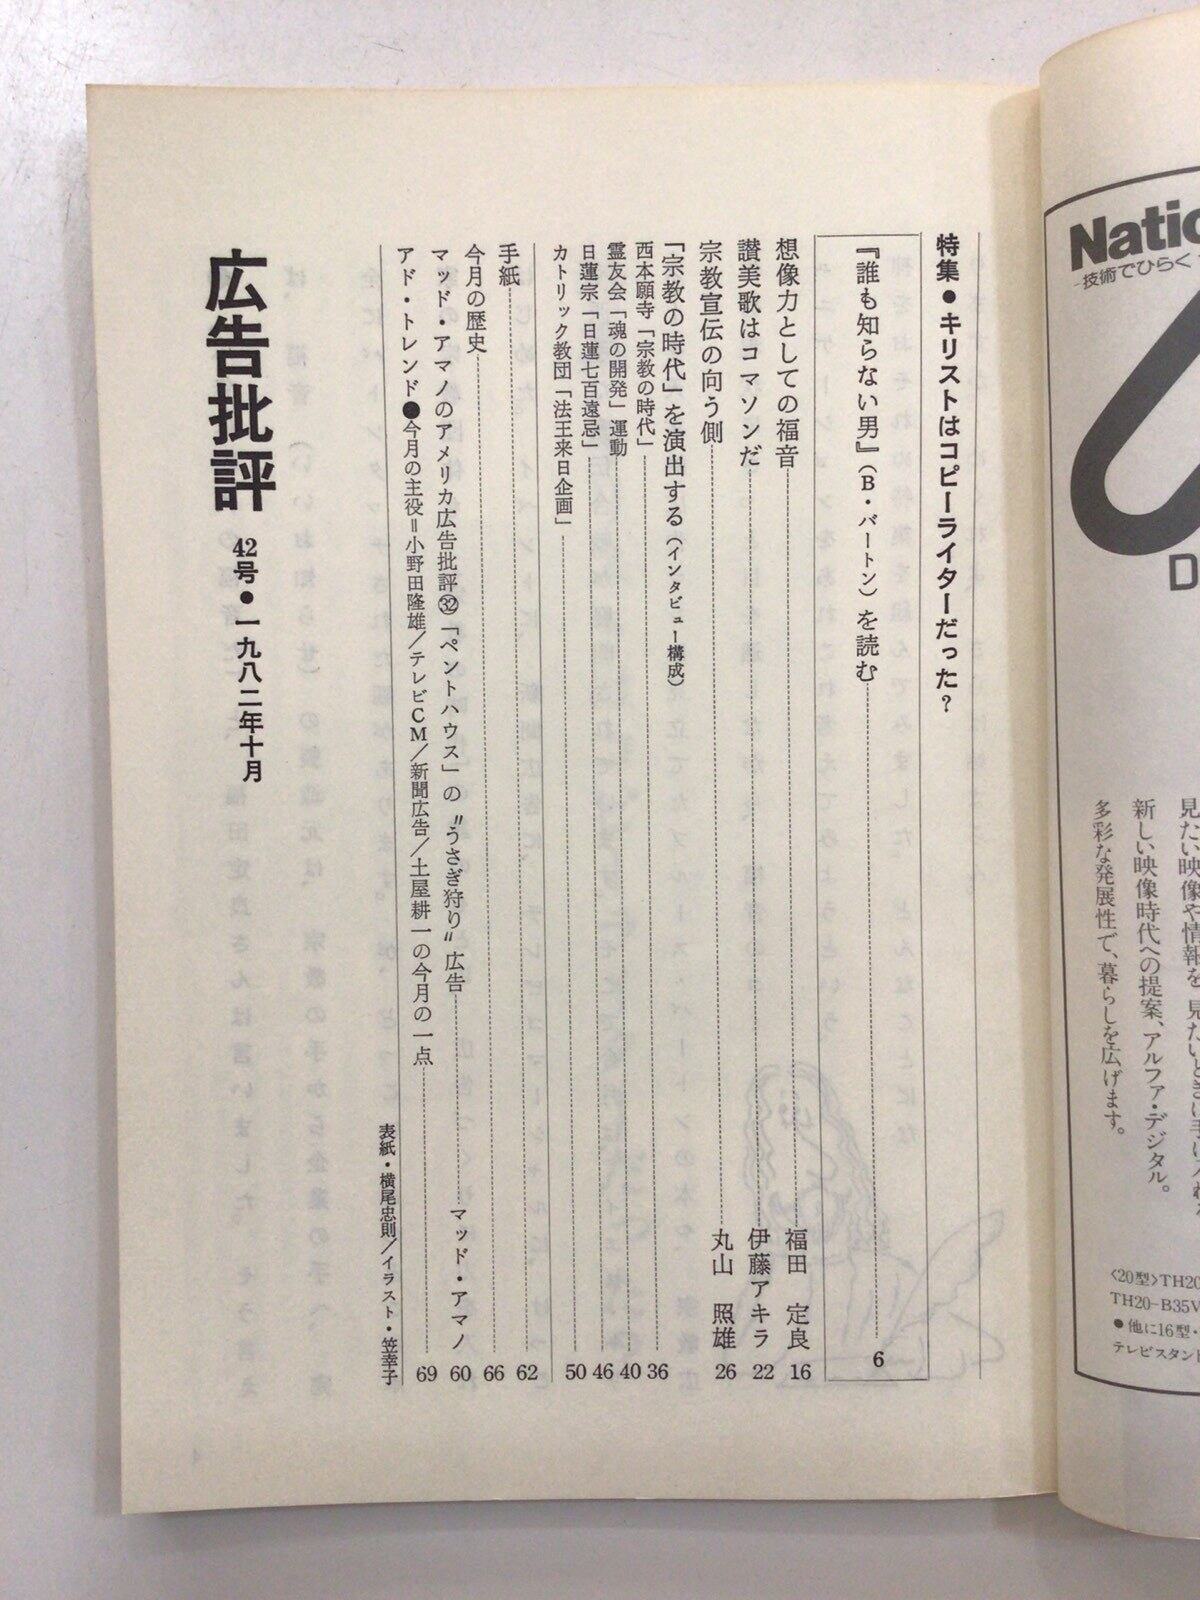 National
-技術でひらく
D
見たい映像や情報を、見たいときに手に入れる
新しい映像時代への提案、アルファ・デジタル。
多彩な発展性で、暮らしを広げます。
〈20型〉TH20
TH20-B35V
●他に16型・
テレビスタンド
特集●キリストはコピーライターだった？
『誰も知らない男』（B・バートン）を読む 6
想像力としての福音 福田 定良 16
讃美歌はコマソンだ 伊藤アキラ 22
宗教宣伝の向う側 丸山 照雄 26
「宗教の時代」を演出する（インタビュー構成）
西本願寺「宗教の時代」 36
霊友会「魂の開発」運動 40
日蓮宗「日蓮七百遠忌」 46
カトリック教団「法王来日企画」 50
手紙 62
今月の歴史 66
マッド・アマノのアメリカ広告批評㉜「ペントハウス」の〝うさぎ狩り〟広告 マッド・アマノ 60
アド・トレンド●今月の主役＝小野田隆雄／テレビCM／新聞広告／土屋耕一の今月の一点 69
表紙・横尾忠則／イラスト・笠幸子
広告批評 42号●一九八二年十月